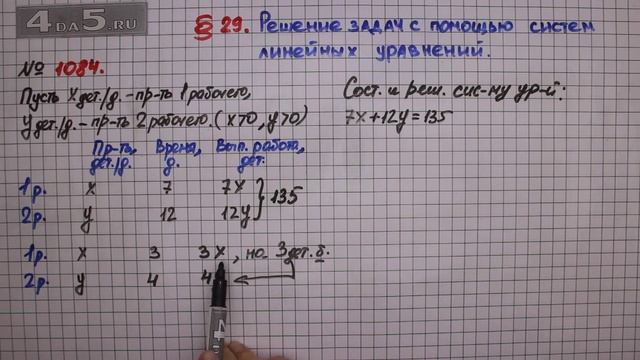 4DA5.RU
§ 29. Решение задач с помощью систем
линейных уравнений.
№ 1084.
Пусть X дет./д. - пр-ть 1 рабочего,
У дет./д. - пр-ть 2 рабочего. (x>0, y>0)
Пр-ть, дет./д. Время, д. Вып. работа, дет.
1р. x 7 7x } 135
2р. y 12 12y
1р. x 3 3x, на 3 дет. б.
2р. y 4 4
Сост. и реш. сис-му ур-й:
7x+12y=135